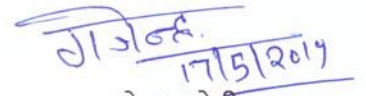 गजेन्द्र.
17/5/2019